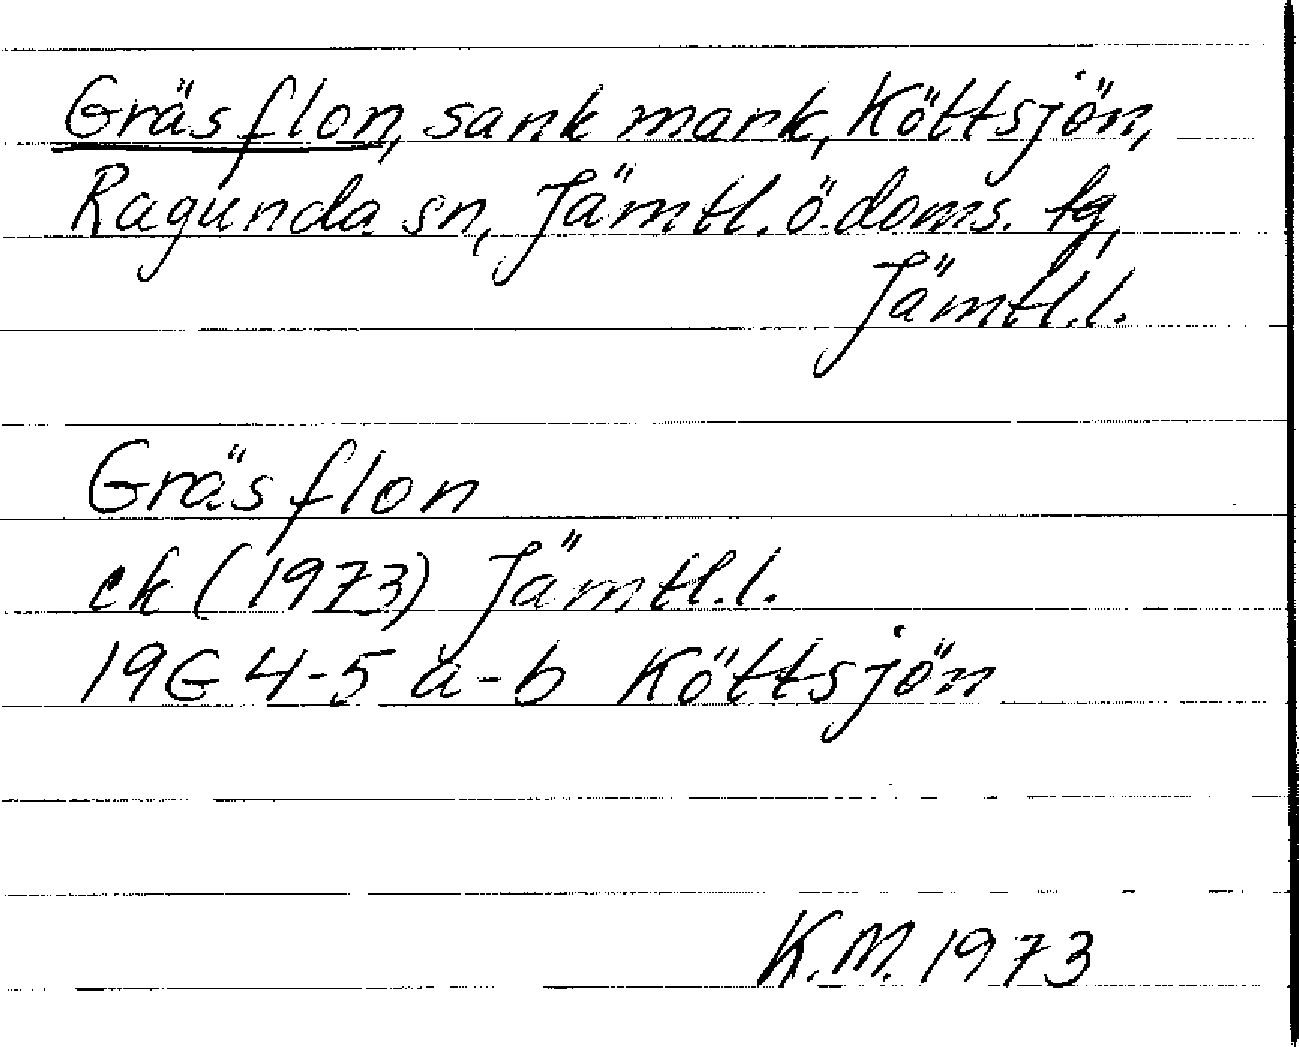 Gräsflon, sank mark, Köttsjön,
Ragunda sn, Jämtl. ö. doms. tg,
Jämtl.l.
Gräsflon
ek (1973) Jämtl.l.
19G 4-5 a-b Köttsjön
K.M. 1973